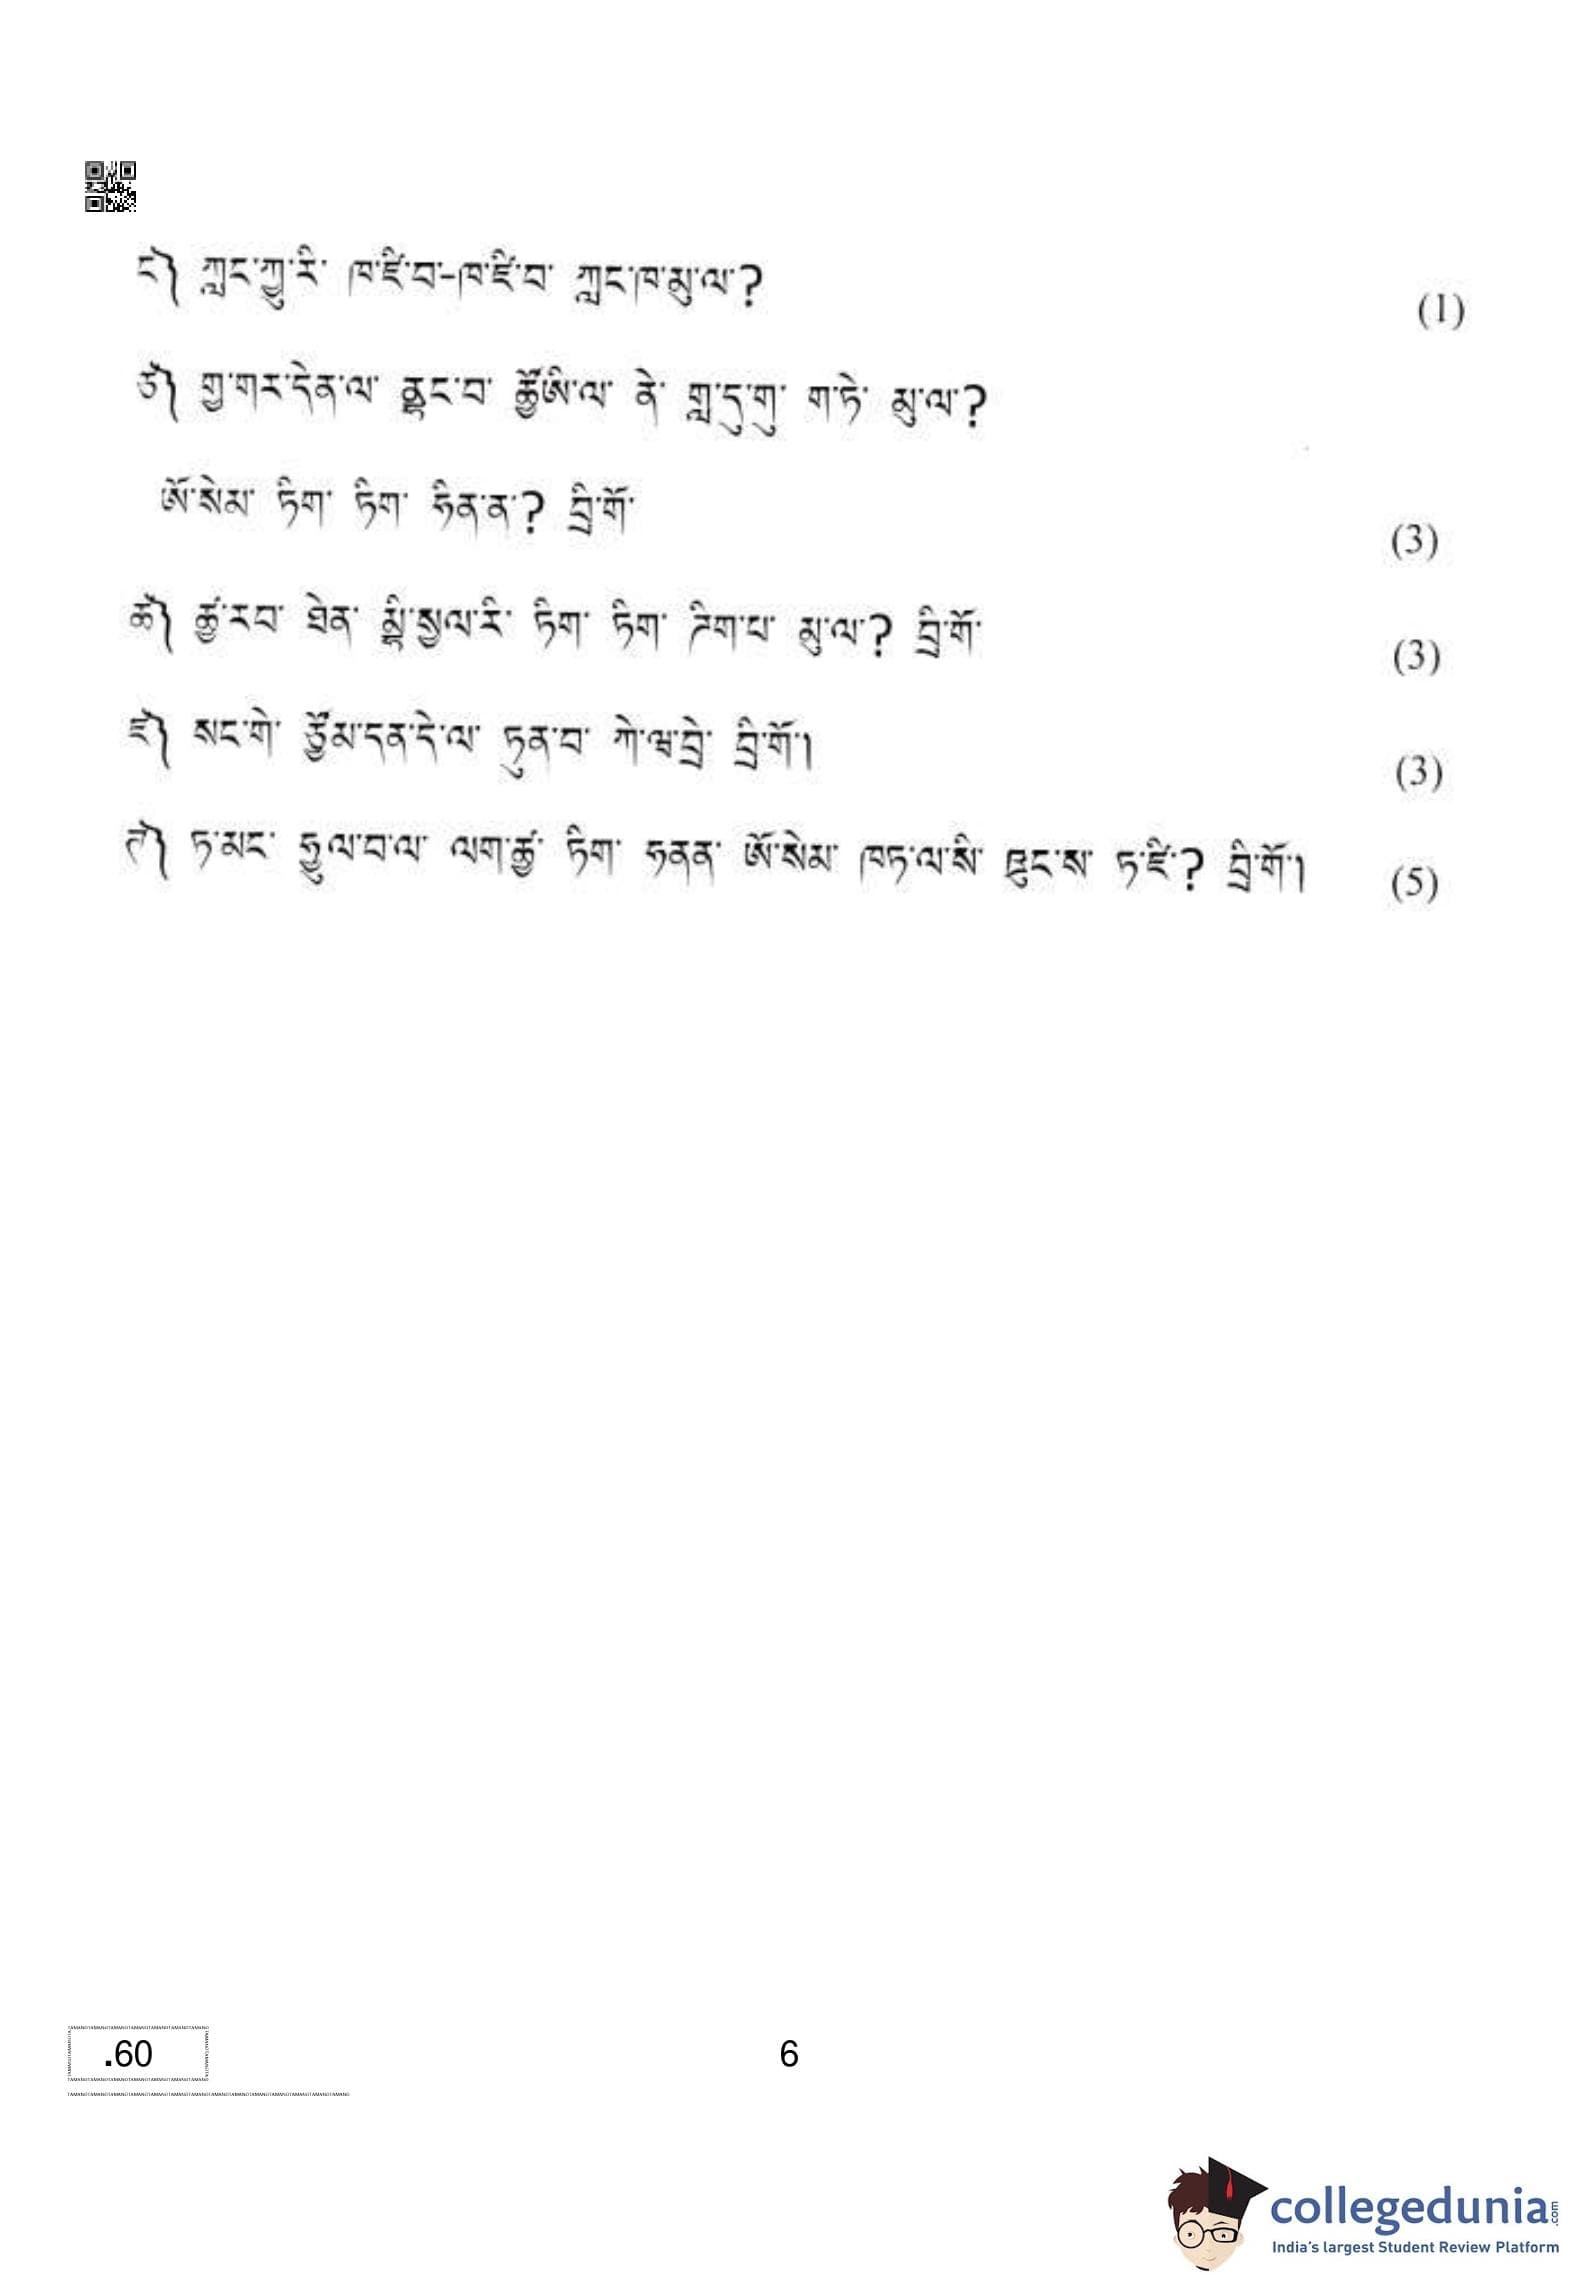 ང༽ ཀླང་ཀྱུ་རི་ ཁ་ཛི་བ་-ཁ་ཛི་བ་ ཀླང་ཁ་མུ་ལ་? (1)
ཙ༽ གྱ་གར་དེན་ལ་ ནྷང་བ་ ཚྱོཨི་ལ་ ནེ་ གླ་དུ་གུ་ ག་ཏེ་ མུ་ལ་?
ཨོ་སེམ་ ཏིག་ ཏིག་ ཧིན་ན་? བྲི་གོ་ (3)
ཚ༽ ཚྱ་རབ་ ཐེན་ མྷི་སྱལ་རི་ ཏིག་ ཏིག་ ཊིག་པ་ མུ་ལ་? བྲི་གོ་ (3)
ཛ༽ སང་གེ་ ཙྱོམ་དན་དེ་ལ་ ཏུན་བ་ ཀེ་ཝ་བྲེ་ བྲི་གོ་། (3)
ཊ༽ ཏ་མང་ ཧྱུལ་བ་ལ་ ལག་ཚྱ་ ཏིག་ ཧནན་ ཨོ་སེམ་ ཁཏ་ལ་སི་ ཟུང་ས་ ཏ་ཛི་? བྲི་གོ་། (5)
.60
6
collegedunia.com
India's largest Student Review Platform